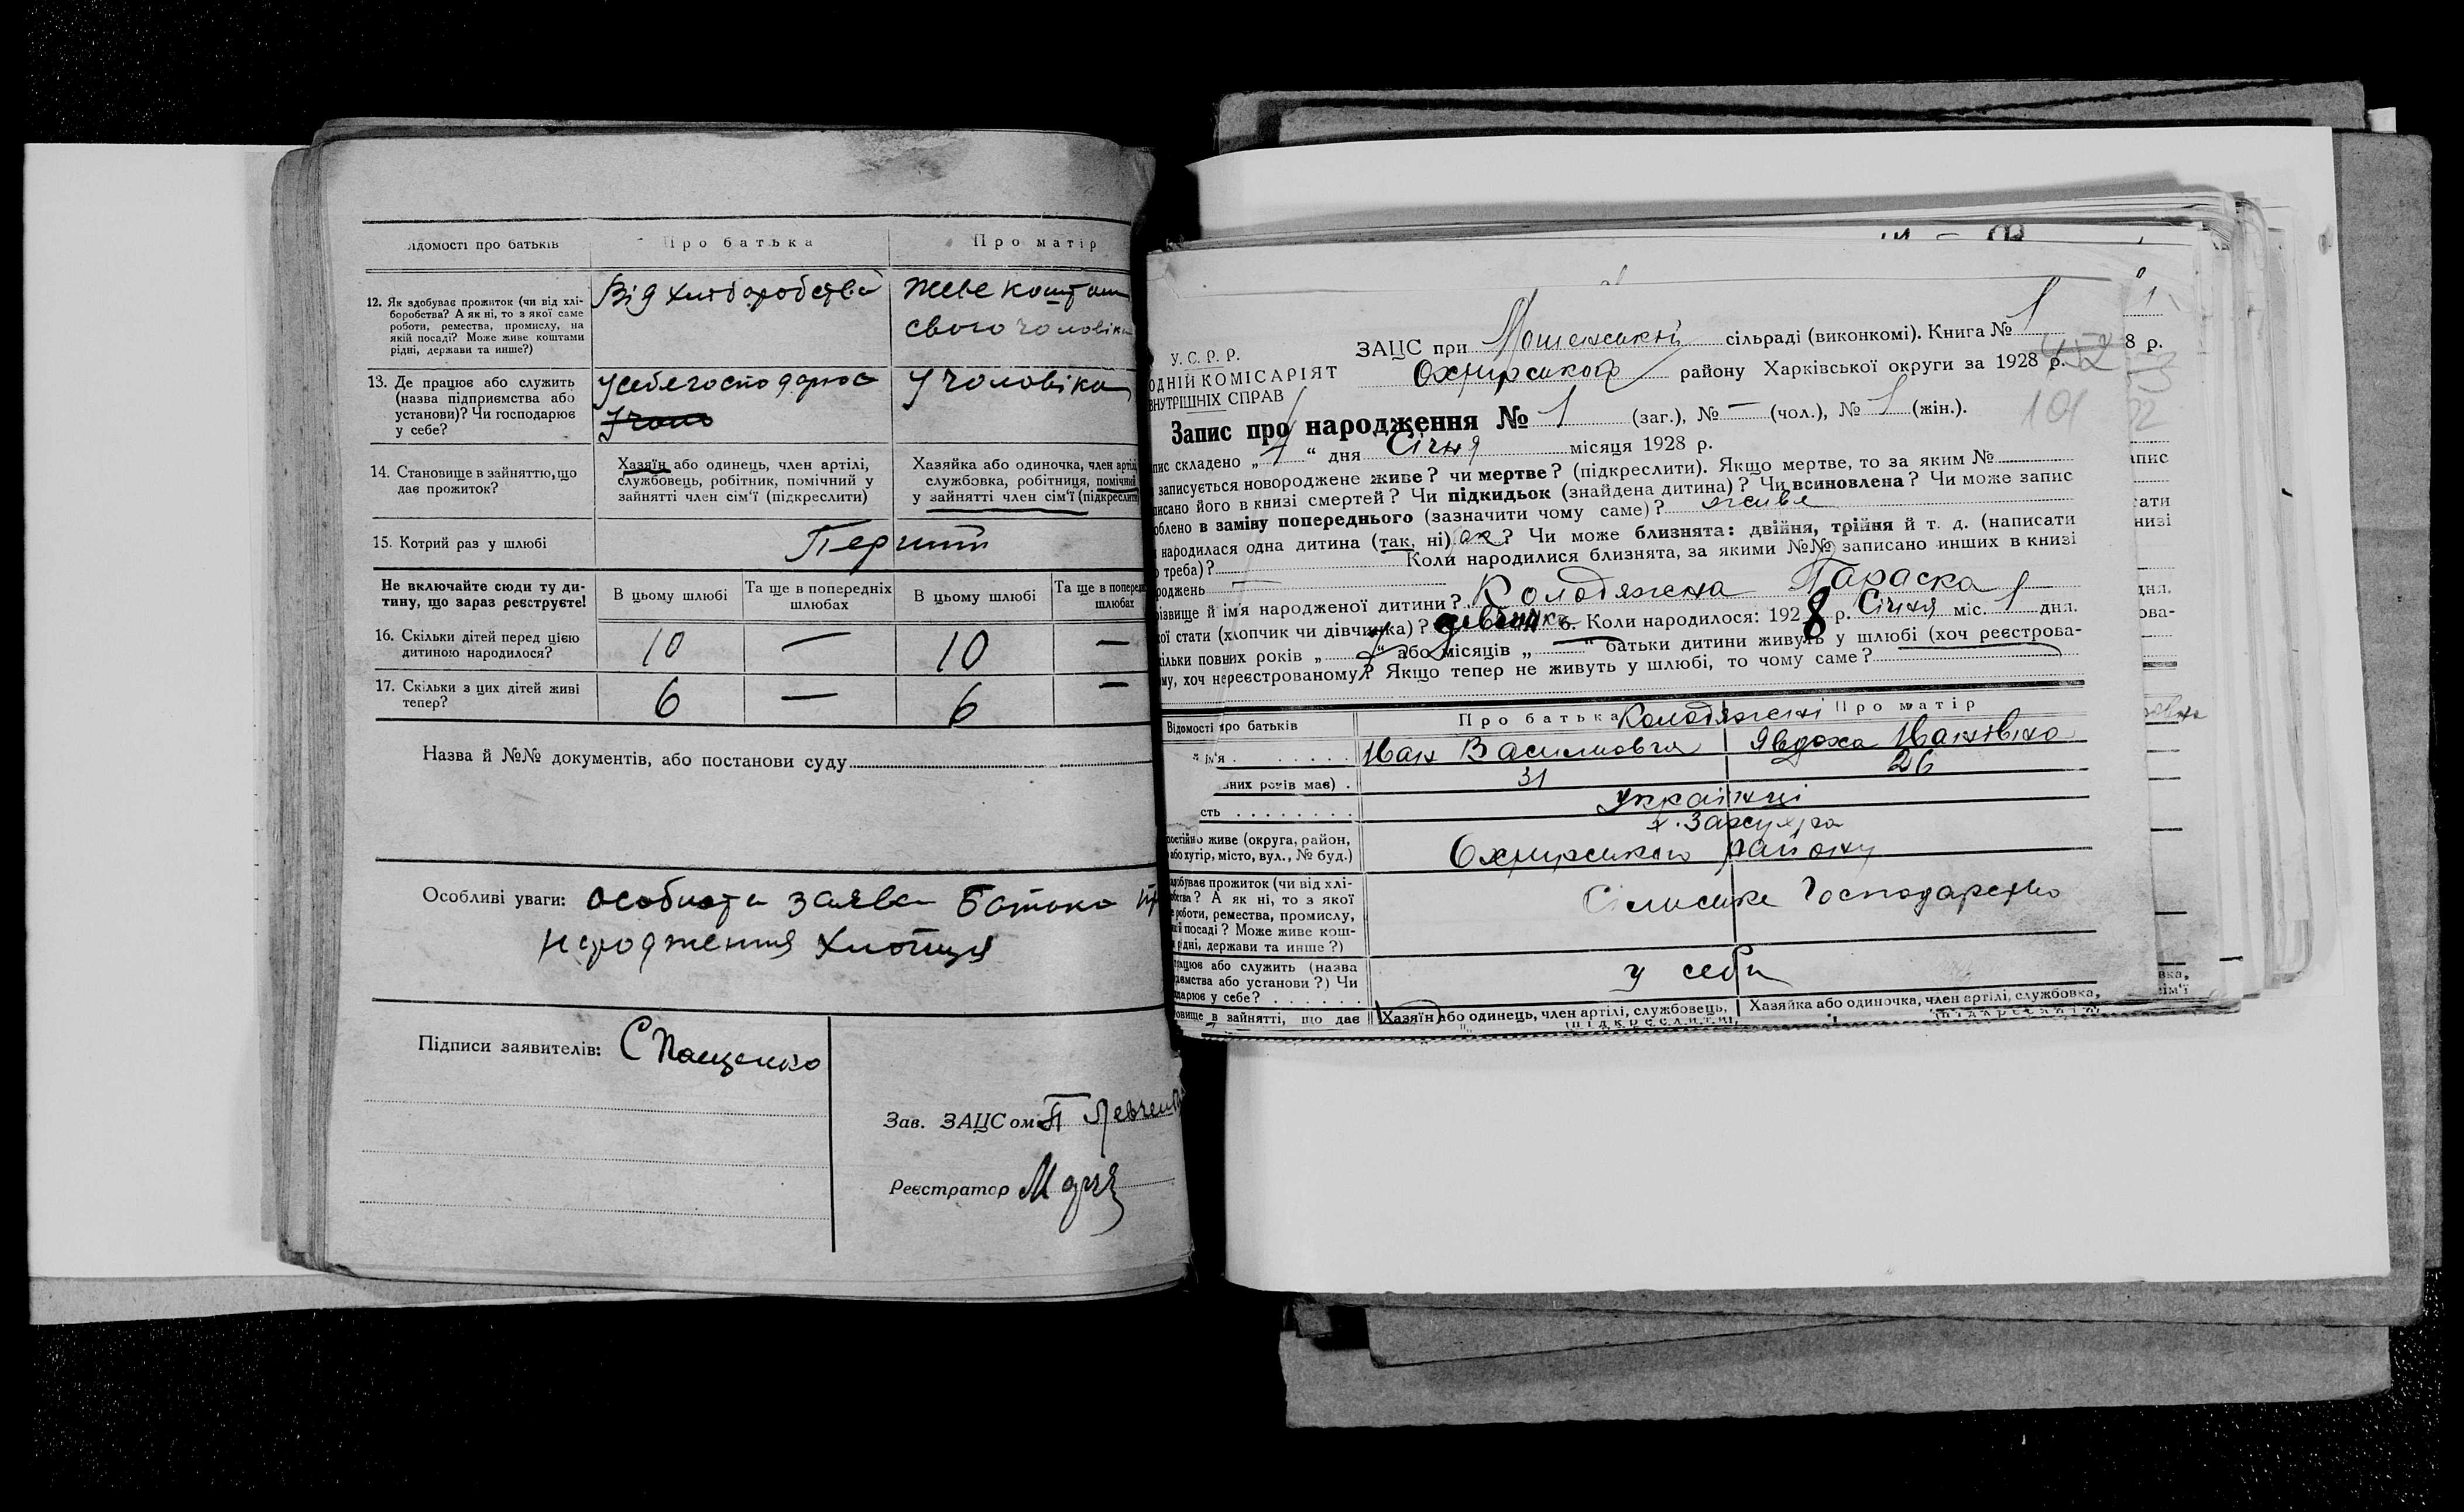 Про батька
Про матір
12. Як здобуває прожиток (чи від хлі-
боробства? А як ні, то з якої саме
роботи, ремества, промислу, на
якій посаді? Може живе коштами
рідні, держави та инше?)
Від хліборобства
живе коштам
свого чоловіка
13. Де працює або служить
(назва підприємства або
установи)? Чи господарює
у себе?
у себе господарює
У чоловіка
14. Становище в зайняттю, що
дає прожиток?
Хазяїн або одинець, член артілі,
службовець, робітник, помічний у
зайнятті член сім'ї (підкреслити)
Хазяйка або одиночка, член артіл
службовка, робітниця, помічний
у зайнятті член сім'ї (підкреслити
15. Котрий раз у шлюбі
Перший
Не включайте сюди ту ди-
тину, що зараз реєструєте!
В цьому шлюбі
Та ще в попередніх
шлюбах
В цьому шлюбі
Та ще в поперед
шлюбах
16. Скільки дітей перед цією
дитиною народилося?
10 — 10 —
17. Скільки з цих дітей живі
тепер?
6 — 6 —
Назва й №№ документів, або постанови суду
Особливі уваги: особиста заява батька
народження хлопця
Підписи заявителів: С Пащенко
Зав. ЗАЦСом П Левчен
Реєстратор
У. С. Р. Р.
ОДНІЙ КОМІСАРІЯТ
ВНУТРІШНІХ СПРАВ
ЗАЦС при сільраді (виконкомі). Книга № 1
Охтирського району Харківської округи за 1928 р.
8 р.
101
Запис про народження № 1 (заг.), № — (чол.), № 1 (жін.).
пис складено „ 7 “ дня Січня місяця 1928 р.
записується новороджене живе? чи мертве? (підкреслити). Якщо мертве, то за яким №
писано його в книзі смертей? Чи підкидьок (знайдена дитина)? Чи всиновлена? Чи може запис
облено в заміну попереднього (зазначити чому саме)? живе
народилася одна дитина (так, ні) ? Чи може близнята: двійня, трійня й т. д. (написати
треба)? Коли народилися близнята, за якими №№ записано инших в книзі
роджень —
різвище й ім'я народженої дитини? Колодяжна Параска
кої стати (хлопчик чи дівчинка)? дівчинка 6. Коли народилося: 1928 р. Січня міс. 1 дня.
кільки повних років „ 7 “ або місяців „ — “ батьки дитини живуть у шлюбі (хоч реєстрова-
му, хоч нереєстрованому)? Якщо тепер не живуть у шлюбі, то чому саме?
Відомості про батьків
Про батька
Колодяжні
Про матір
ім'я
Иван Васильович
Явдоха Иванівна
вних років має)
31
26
сть
Українці
х. Закутра
постійно живе (округа, район,
або хутір, місто, вул., № буд.)
Охтирського району
здобуває прожиток (чи від хлі-
бства? А як ні, то з якої
роботи, ремества, промислу,
й посаді? Може живе кош-
рідні, держави та инше?)
Сільське господарство
рацює або служить (назва
риємства або установи?) Чи
дарює у себе?
у себе
овище в зайнятті, що дає
Хазяїн або одинець, член артілі, службовець,
Хазяйка або одиночка, член артілі, службовка,